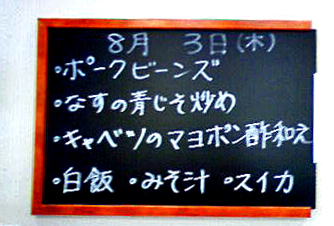 8月 3日(木)
・ポークビーンズ
・なすの青じそ炒め
・キャベツのマヨポン酢和え
・白飯 ・みそ汁 ・スイカ